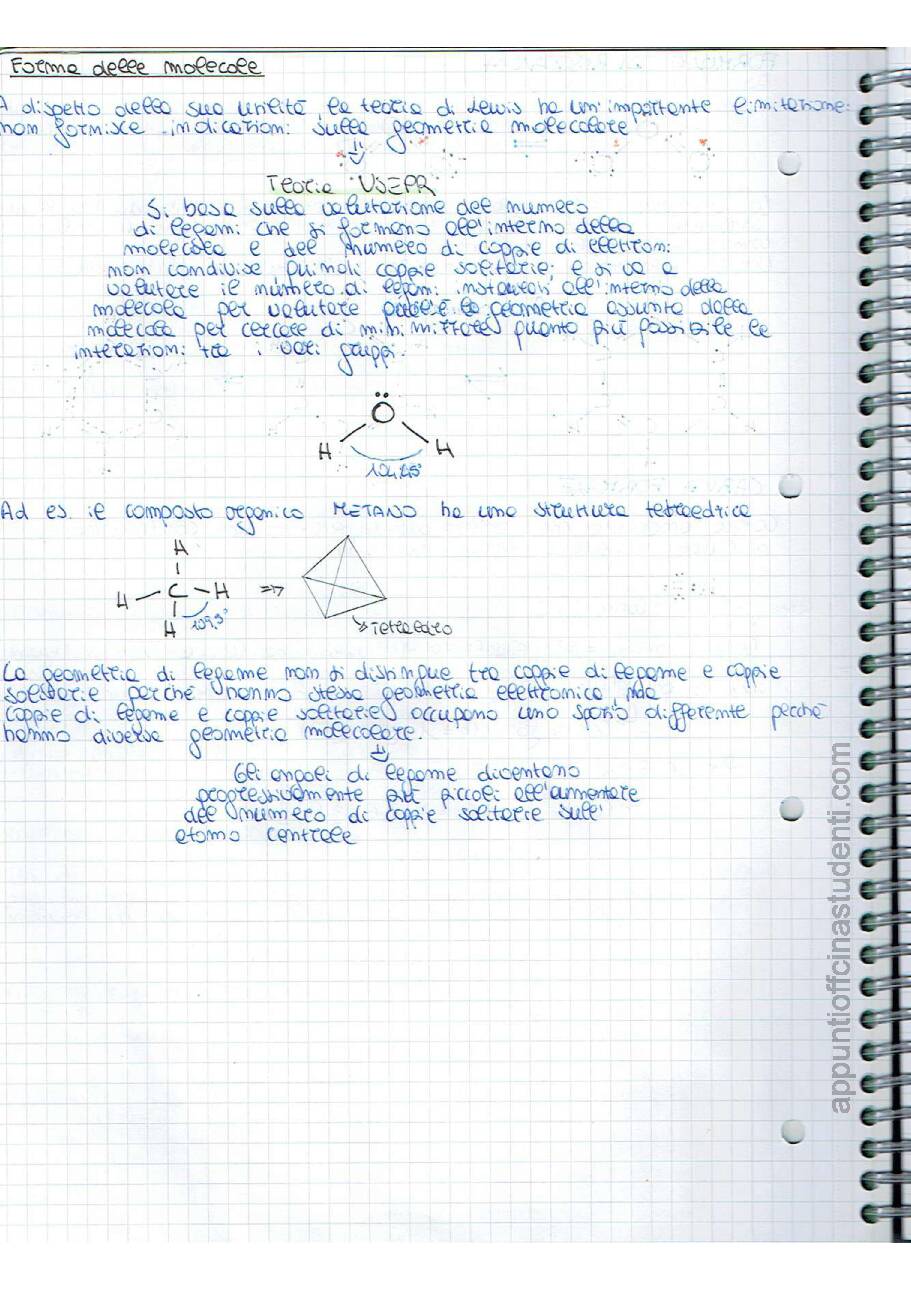 Forma delle molecole
A dispetto della sua utilità, la teoria di Lewis ha un'importante limitazione:
non fornisce indicazioni sulla geometria molecolare
Teoria VSEPR
Si basa sulla valutazione del numero
di legami che si formano all'interno della
molecola e del numero di coppie di elettroni
non condivise quindi coppie solitarie; e si va a
valutare il numero di legami instaurati all'interno della
molecola per valutare qual'è la geometria assunta dalla
molecola per cercare di minimizzare quanto più possibile le
interazioni tra i vari gruppi.
O
H H
104,45°
Ad es. il composto organico METANO ha una struttura tetraedrica
H
H - C - H =>
109,5°
H
Tetraedro
La geometria di legame non si distingue tra coppie di legame e coppie
solitarie perché hanno stessa geometria elettronica, ma
coppie di legame e coppie solitarie occupano uno spazio differente perché
hanno diversa geometria molecolare.
Gli angoli di legame diventano
progressivamente più piccoli all'aumentare
del numero di coppie solitarie sull'
atomo centrale
appuntioffcinastudenti.com